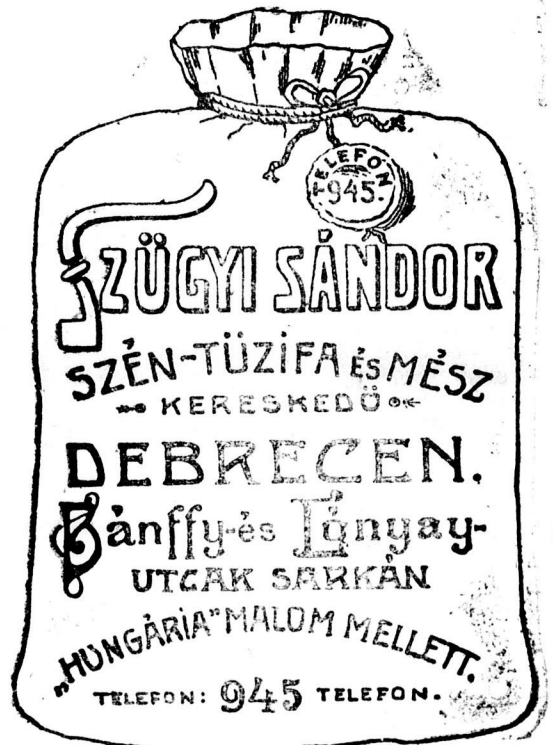 TELEFON
945.
SZÜGYI SÁNDOR
SZÉN-TÜZIFA és MÉSZ
KERESKEDŐ
DEBRECEN.
Bánffy-és Lónyay-
UTCÁK SARKÁN
„HUNGÁRIA” MALOM MELLETT.
TELEFON: 945 TELEFON.